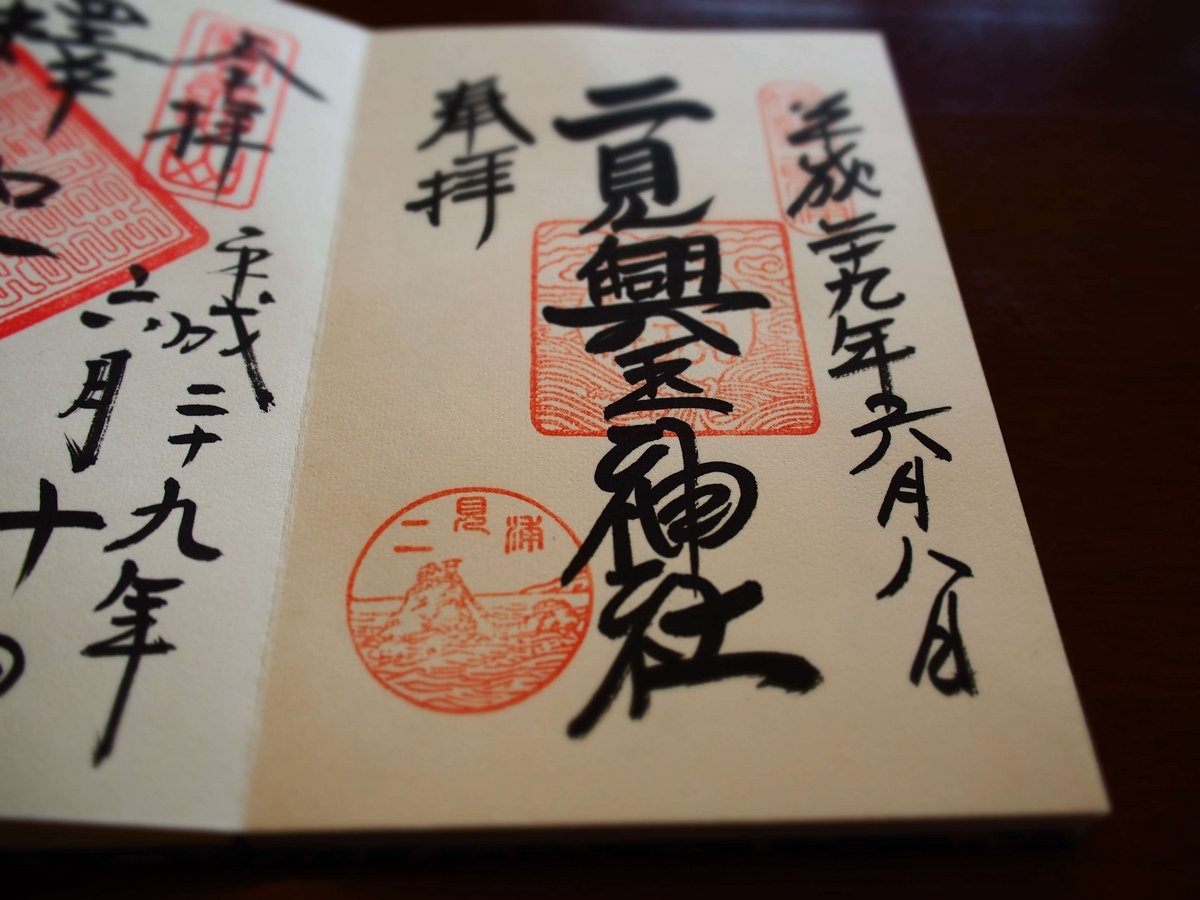 平成二十九年六月八日
二見興玉神社
奉拝
二見浦
奉拝
平成二十九年
六月十